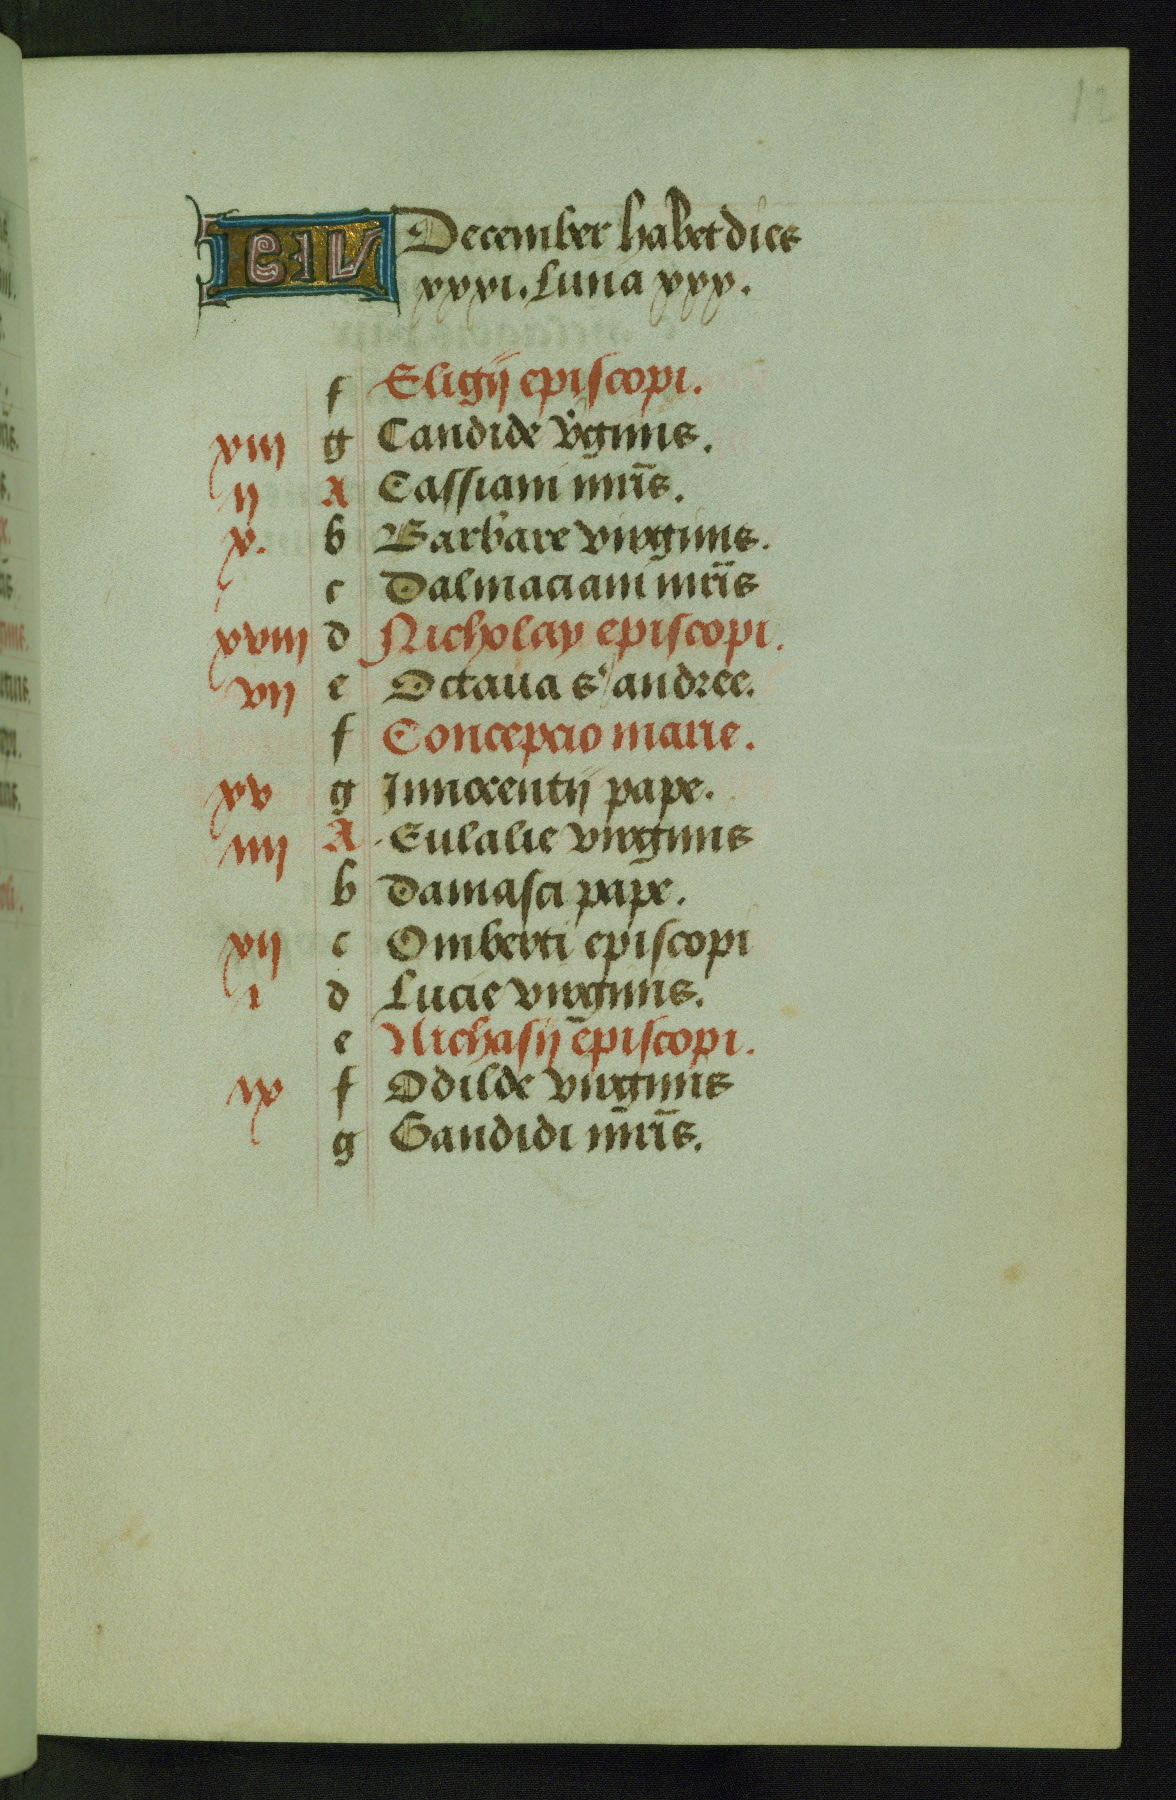 12
KL December habet dies
xxxi. Luna xxx.
f Eligij episcopi.
xiii g Candide v'ginis.
ij A Cassiani mr̄is.
x. b Barbare virginis.
c Dalmaciani mr̄is
xviii d Nicholay episcopi.
vij e Octaua s' andree.
f Concepcio marie.
xv g Innocentij pape.
iiij A Eulalie virginis
b Damasci pape.
xij c Omberti episcopi
i d Lucie virginis.
e Nichasij episcopi.
ix f Odilde virginis
g Candidi mr̄is.